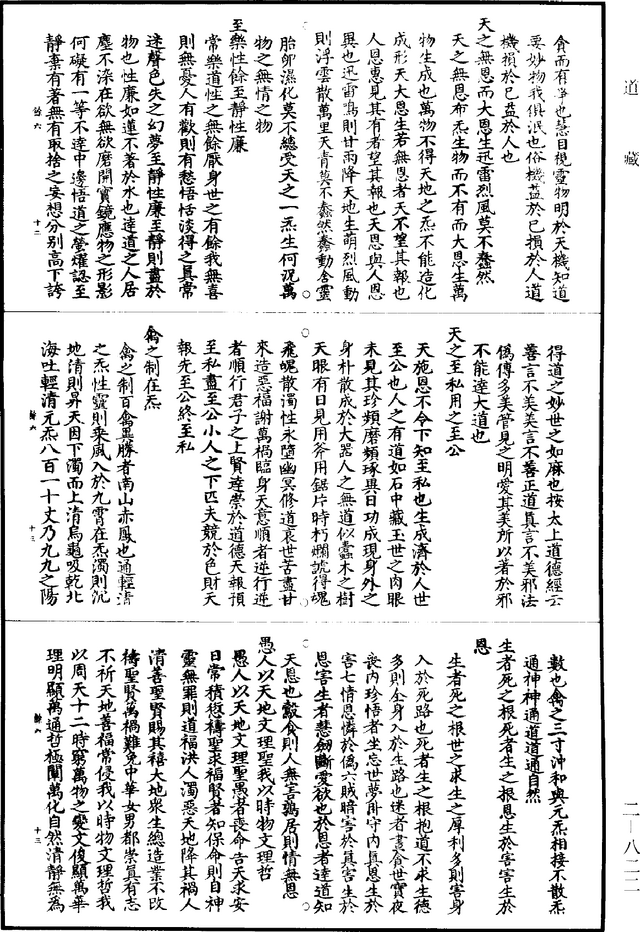 道藏
貪而有爭也慧目視靈物明於天機知道
要妙物我俱泯也俗機益於已損於人道
機損於已益於人也
天之無恩而大恩生迅雷烈風莫不蠢然
天之無恩布炁生物而不有而大恩生萬
物生成也萬物不得天地之炁不能造化
成形天大恩生若無恩者天不望其報也
人恩惠見其有者望其報也天恩與人恩
異也迅雷鳴則甘雨降天地生萌烈風動
則浮雲散萬里天青莫不蠢然蠢動含靈
胎卵濕化莫不總受天之一炁生何況萬
物之無情之物
至樂性餘至靜性廉
常樂道性之無餘厭身世之有餘我無喜
則無憂人有歡則有愁悟恬淡得之真常
迷聲色失之幻夢至靜性廉至靜則盡於
物也性廉如蓮不著於水也達道之人居
塵不染在欲無欲磨開寶鏡應物之形影
何礙有一等不達中邊悟道之螢燿認至
靜棄有著無有取捨之妄想分別高下誇
得道之妙世之如麻也按太上道德經云
善言不美美言不善正道真言不美邪法
偽傳多美管見之明愛其美所以著於邪
不能達大道也
天之至私用之至公
天施恩不令下知至私也生成濟於人世
至公也人之有道如石中藏玉世之肉眼
未見其珍頻磨頻琢與日功成現身外之
身朴散成於大器人之無道似蠹木之樹
天眼有日見用斧用鋸片時朽爛號得魂
飛魄散濁性永墮幽冥修道衰世苦盡甘
來造惡福謝萬禍臨身天意順者逆行逆
者順行君子之上賢達崇於道德天報預
至私盡至公小人之下匹夫競於色財天
報先至公終至私
禽之制在炁
禽之制百禽無勝者南山赤鳳也通輕清
之炁性靈則乘風入於九霄在炁濁則沉
地清則昇天因下濁而上清烏龜吸乾北
海吐輕清元炁八百一十丈乃九九之陽
數也禽之三寸沖和與元炁相接不散炁
通神神通道道通自然
生者死之根死者生之根恩生於害害生於
恩
生者死之根世之求生之厚利多則害身
入於死路也死者生之根抱道不求生德
多則全身入於生路也迷者晝貪世寶夜
喪內珍悟者坐忘世夢身守內真恩生於
害七情恩憐於偽六賊暗害於真害生於
恩害生者慧劒斷愛欲也於恩者達道知
天恩也鷇食則人無害鶉居則情無恩
愚人以天地文理聖我以時物文理哲
愚人以天地文理聖愚者喪命告天求安
日常積後禱聖求福賢者知保命則自神
靈無罪則道福洪人濁惡天地降其禍人
清善聖賢賜其禧大地衆生總造業不改
禱聖賢萬禍難免中華女男都崇真有志
不祈天地善福常侵我以時物文理哲我
以周天十二時窮萬物之變文俊顯萬華
理明顯萬通哲極闡萬化自然清靜無為